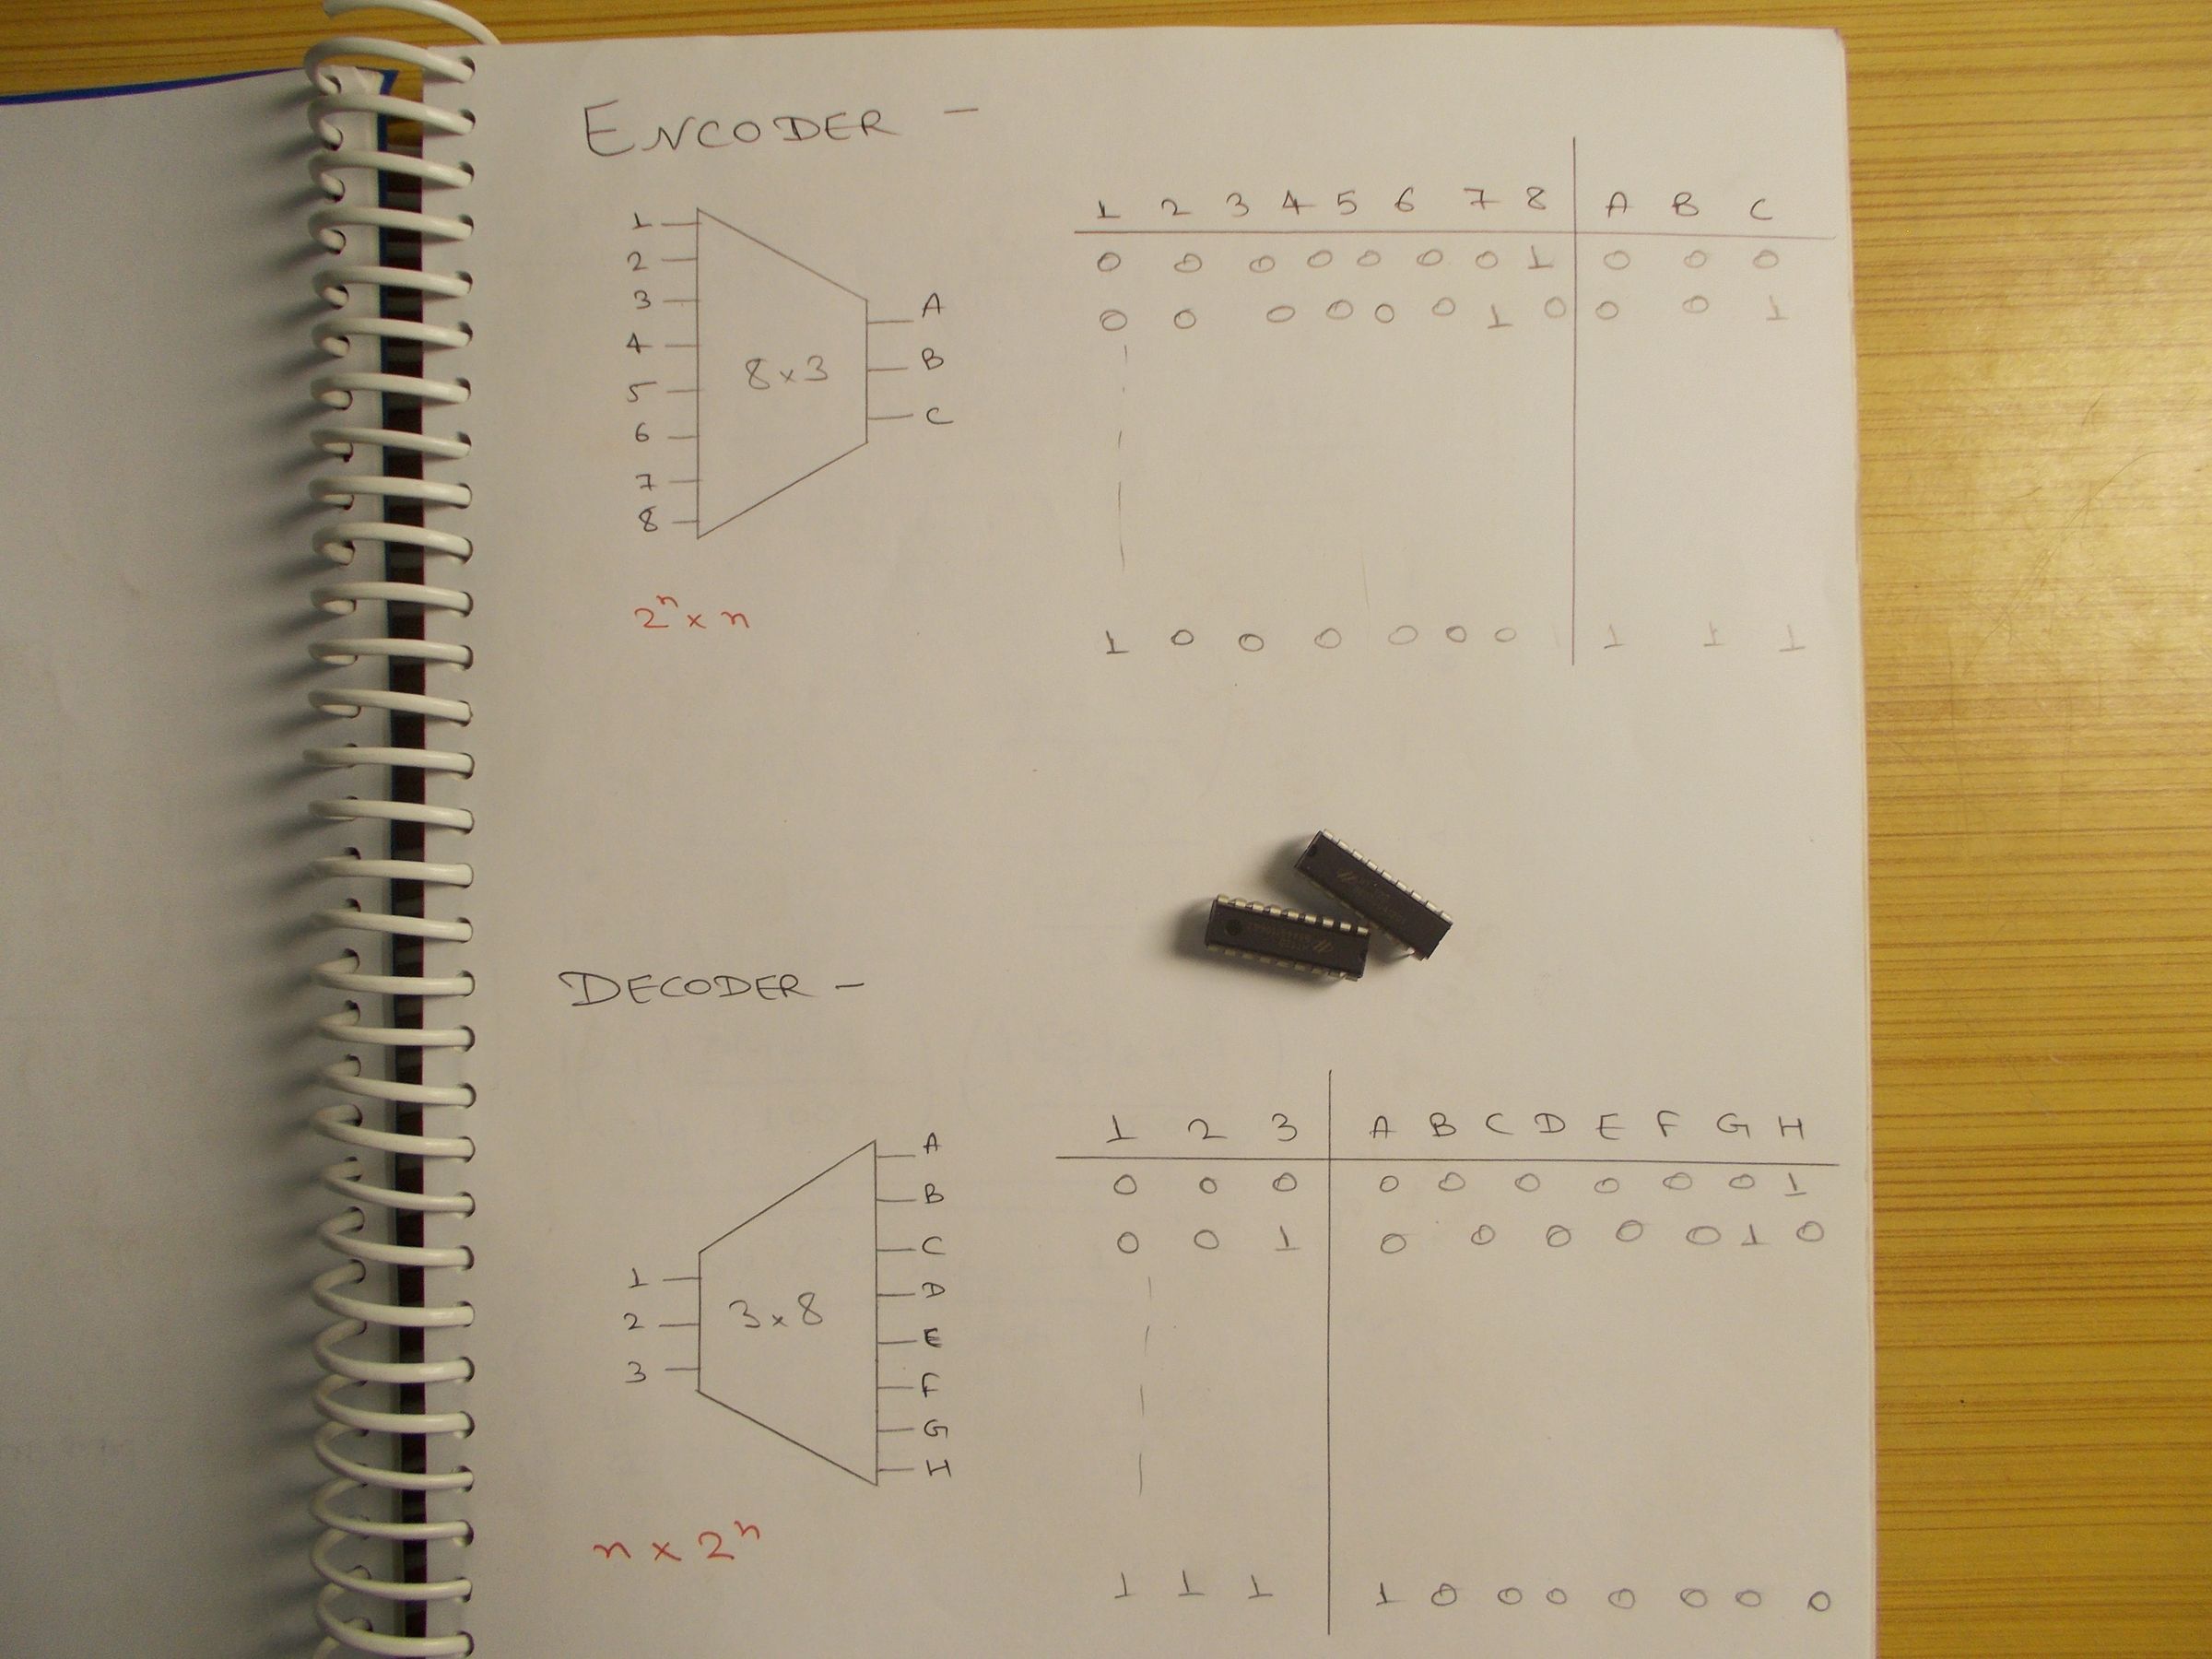 ENCODER -
1 2 3 4 5 6 7 8 A B C
0 0 0 0 0 0 0 1 0 0 0
0 0 0 0 0 0 1 0 0 0 1
1 0 0 0 0 0 0 1 1 1
1
2
3
4
5
6
7
8
8x3
A
B
C
2ⁿ x n
DECODER -
1 2 3 A B C D E F G H
0 0 0 0 0 0 0 0 0 0 1
0 0 1 0 0 0 0 0 1 0
1 1 1 1 0 0 0 0 0 0 0
1
2
3
3x8
A
B
C
D
E
F
G
H
n x 2ⁿ